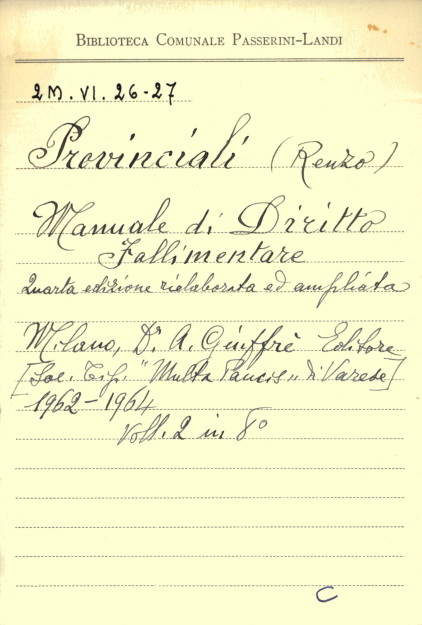 BIBLIOTECA COMUNALE PASSERINI-LANDI
2M. VI. 26-27
Provinciali (Renzo)
Manuale di Diritto
Fallimentare
Quarta edizione rielaborata ed ampliata
Milano, Dr. A. Giuffrè Editore
[Soc. Tip. "Multa Paucis" di Varese]
1962-1964
Voll. 2 in 8°
C